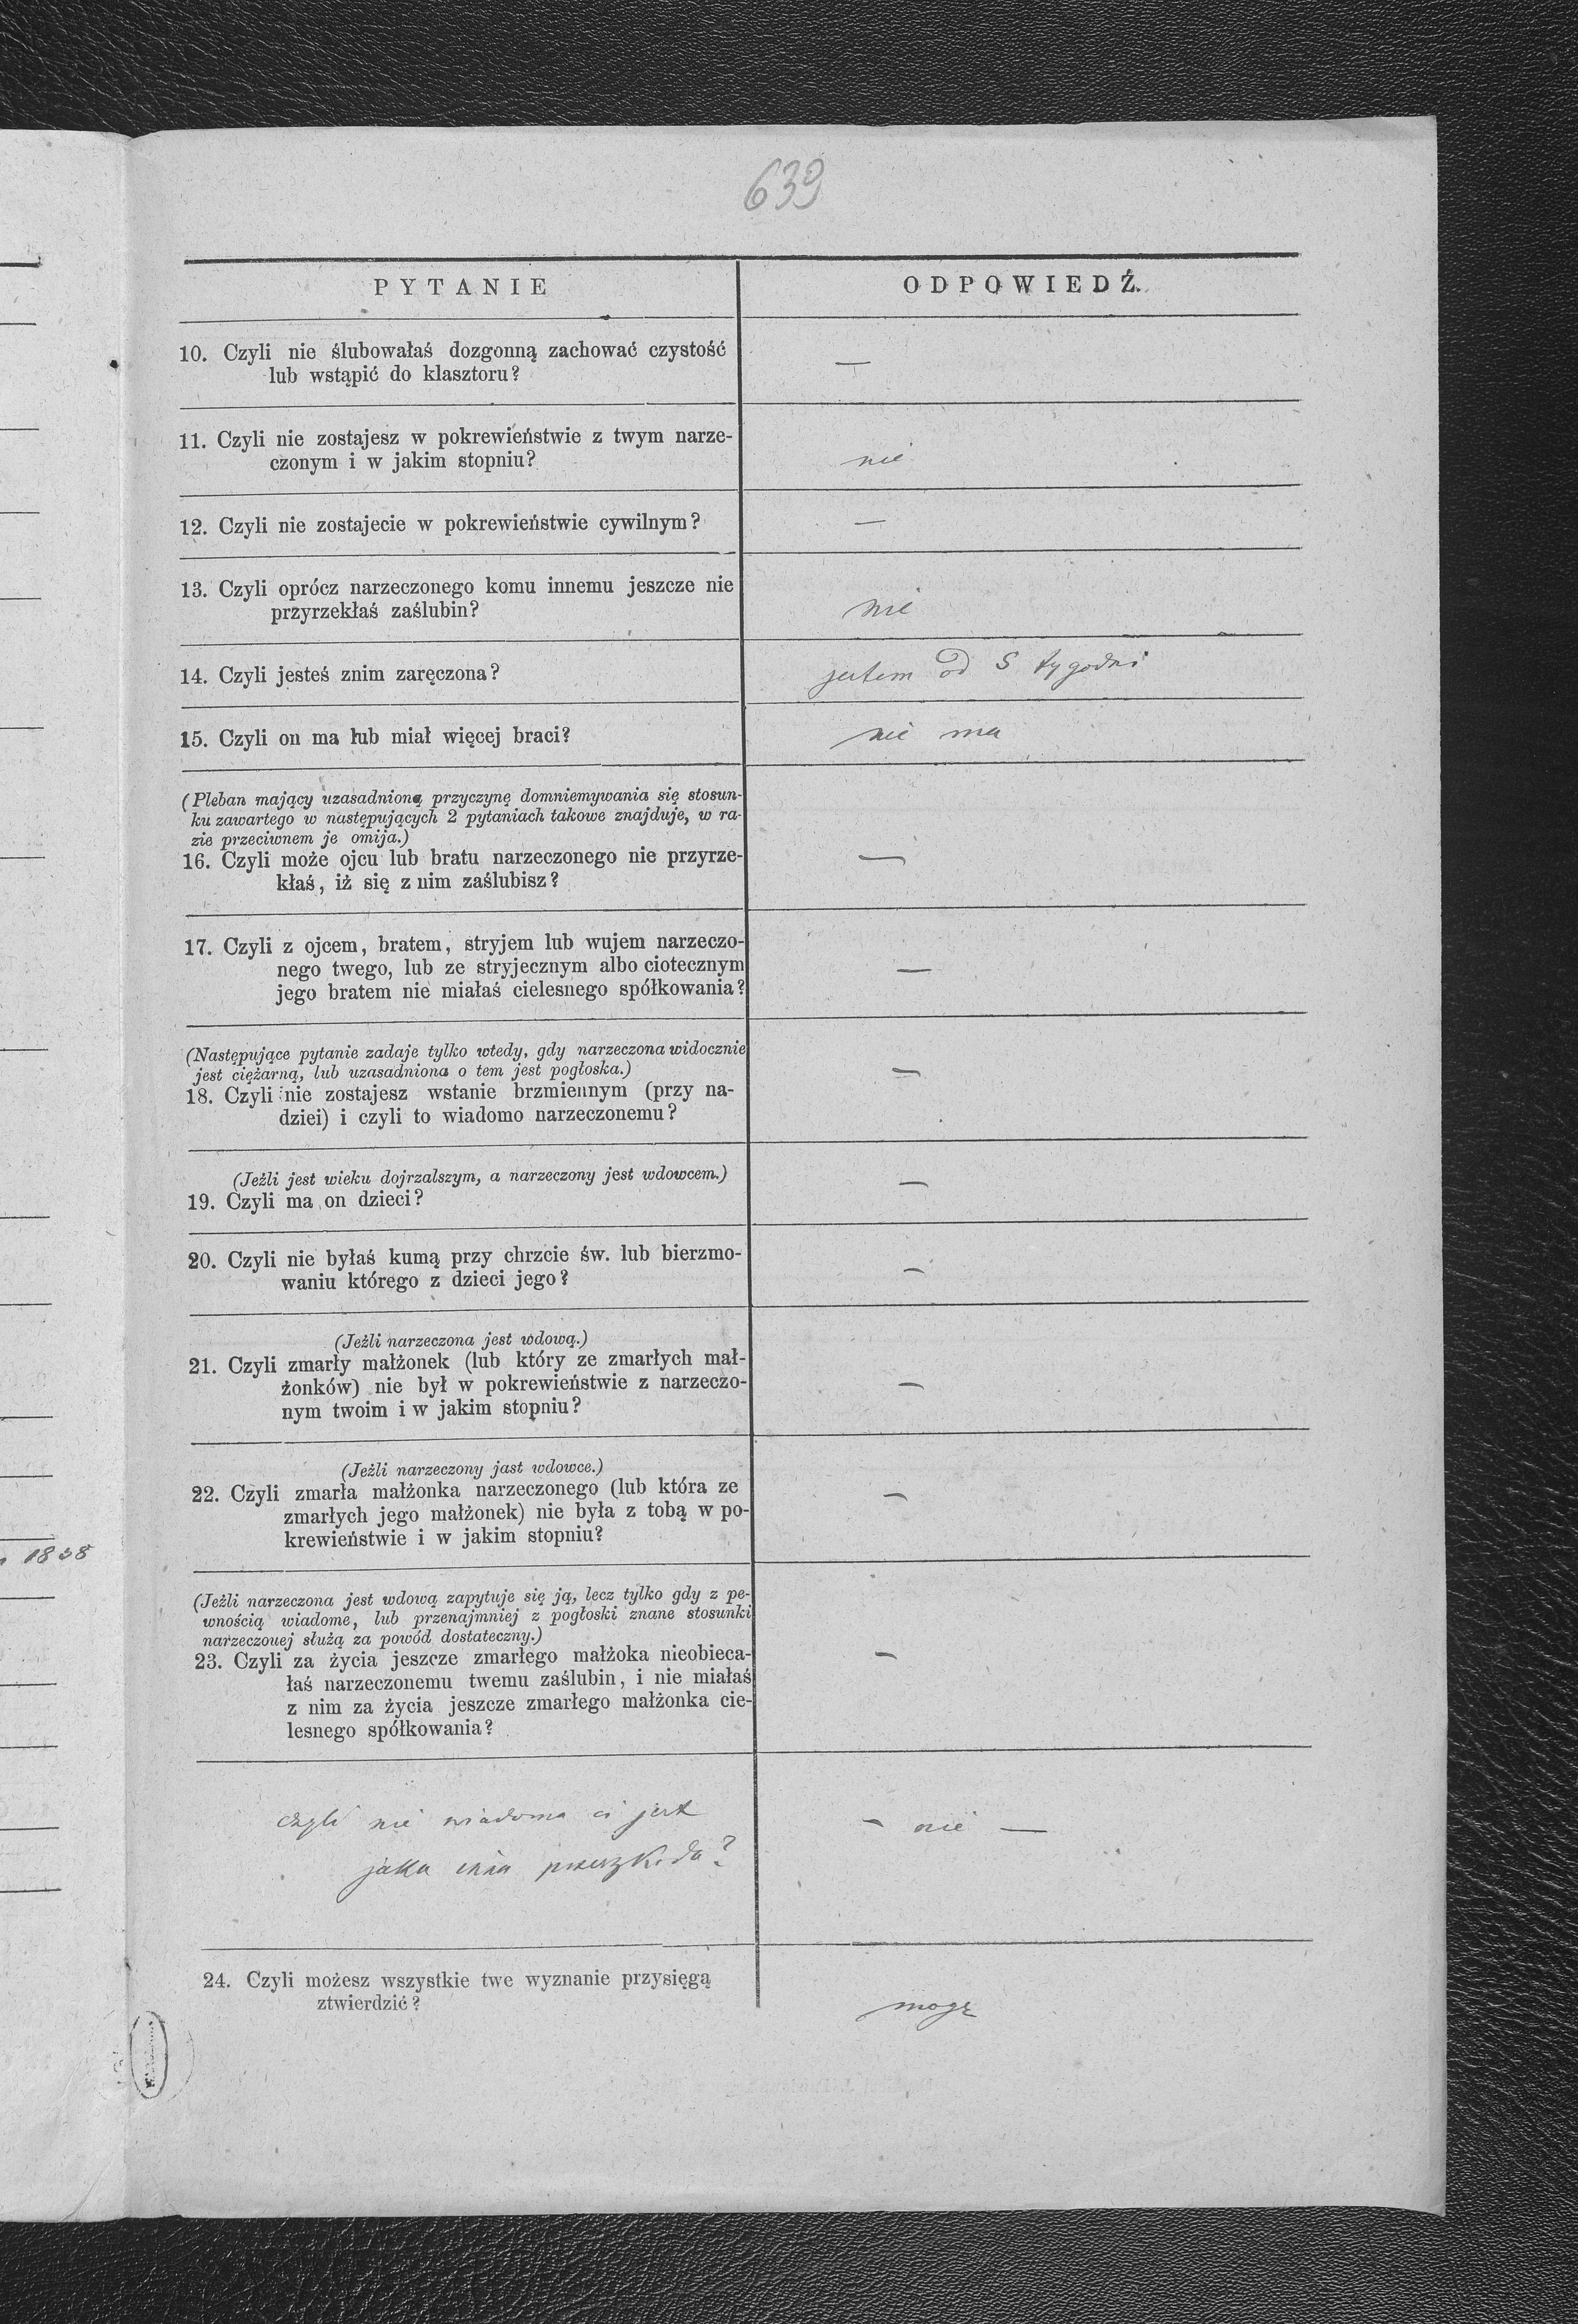 639
PYTANIE
ODPOWIEDŹ.
10. Czyli nie ślubowałaś dozgonną zachować czystość
lub wstąpić do klasztoru?
—
11. Czyli nie zostajesz w pokrewieństwie z twym narze-
czonym i w jakim stopniu?
nie
12. Czyli nie zostajecie w pokrewieństwie cywilnym?
—
13. Czyli oprócz narzeczonego komu innemu jeszcze nie
przyrzekłaś zaślubin?
nie
14. Czyli jesteś znim zaręczona?
jestem od 5 tygodni
15. Czyli on ma lub miał więcej braci?
nie ma
(Pleban mający uzasadnioną przyczynę domniemywania się stosun-
ku zawartego w następujących 2 pytaniach takowe znajduje, w ra-
zie przeciwnem je omija.)
16. Czyli może ojcu lub bratu narzeczonego nie przyrze-
kłaś, iż się z nim zaślubisz?
—
17. Czyli z ojcem, bratem, stryjem lub wujem narzeczo-
nego twego, lub ze stryjecznym albo ciotecznym
jego bratem nie miałaś cielesnego spółkowania?
—
(Następujące pytanie zadaje tylko wtedy, gdy narzeczona widocznie
jest ciężarną, lub uzasadniona o tem jest pogłoska.)
18. Czyli nie zostajesz wstanie brzmiennym (przy na-
dziei) i czyli to wiadomo narzeczonemu?
—
(Jeźli jest wieku dojrzalszym, a narzeczony jest wdowcem.)
19. Czyli ma on dzieci?
—
20. Czyli nie byłaś kumą przy chrzcie św. lub bierzmo-
waniu którego z dzieci jego?
—
(Jeźli narzeczona jest wdową.)
21. Czyli zmarły małżonek (lub który ze zmarłych mał-
żonków) nie był w pokrewieństwie z narzeczo-
nym twoim i w jakim stopniu?
—
(Jeźli narzeczony jast wdowce.)
22. Czyli zmarła małżonka narzeczonego (lub która ze
zmarłych jego małżonek) nie była z tobą w po-
krewieństwie i w jakim stopniu?
—
1838
(Jeźli narzeczona jest wdową zapytuje się ją, lecz tylko gdy z pe-
wnością wiadome, lub przenajmniej z pogłoski znane stosunki
narzeczouej służą za powód dostateczny.)
23. Czyli za życia jeszcze zmarłego małżoka nieobieca-
łaś narzeczonemu twemu zaślubin, i nie miałaś
z nim za życia jeszcze zmarłego małżonka cie-
lesnego spółkowania?
—
czyli nie wiadoma ci jest
jaka inna przeszkoda?
— nie —
24. Czyli możesz wszystkie twe wyznanie przysięgą
ztwierdzić?
mogę